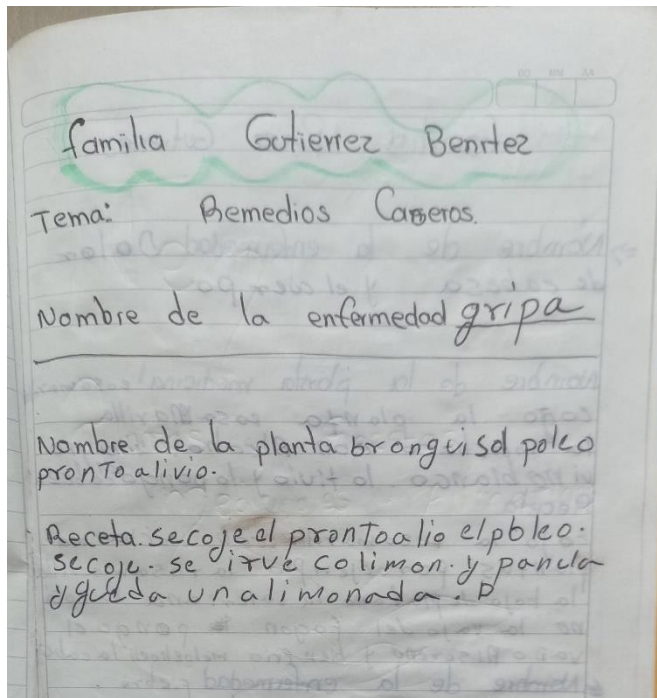 familia Gutierrez Benitez
Tema: Remedios Caseros.
Nombre de la enfermedad gripa
Nombre de la planta bronguisol poleo
pronto alivio.
Receta. secoje el prontoalio elpoleo.
secoje. se irve colimon. y panela
y gueda unalimonada.